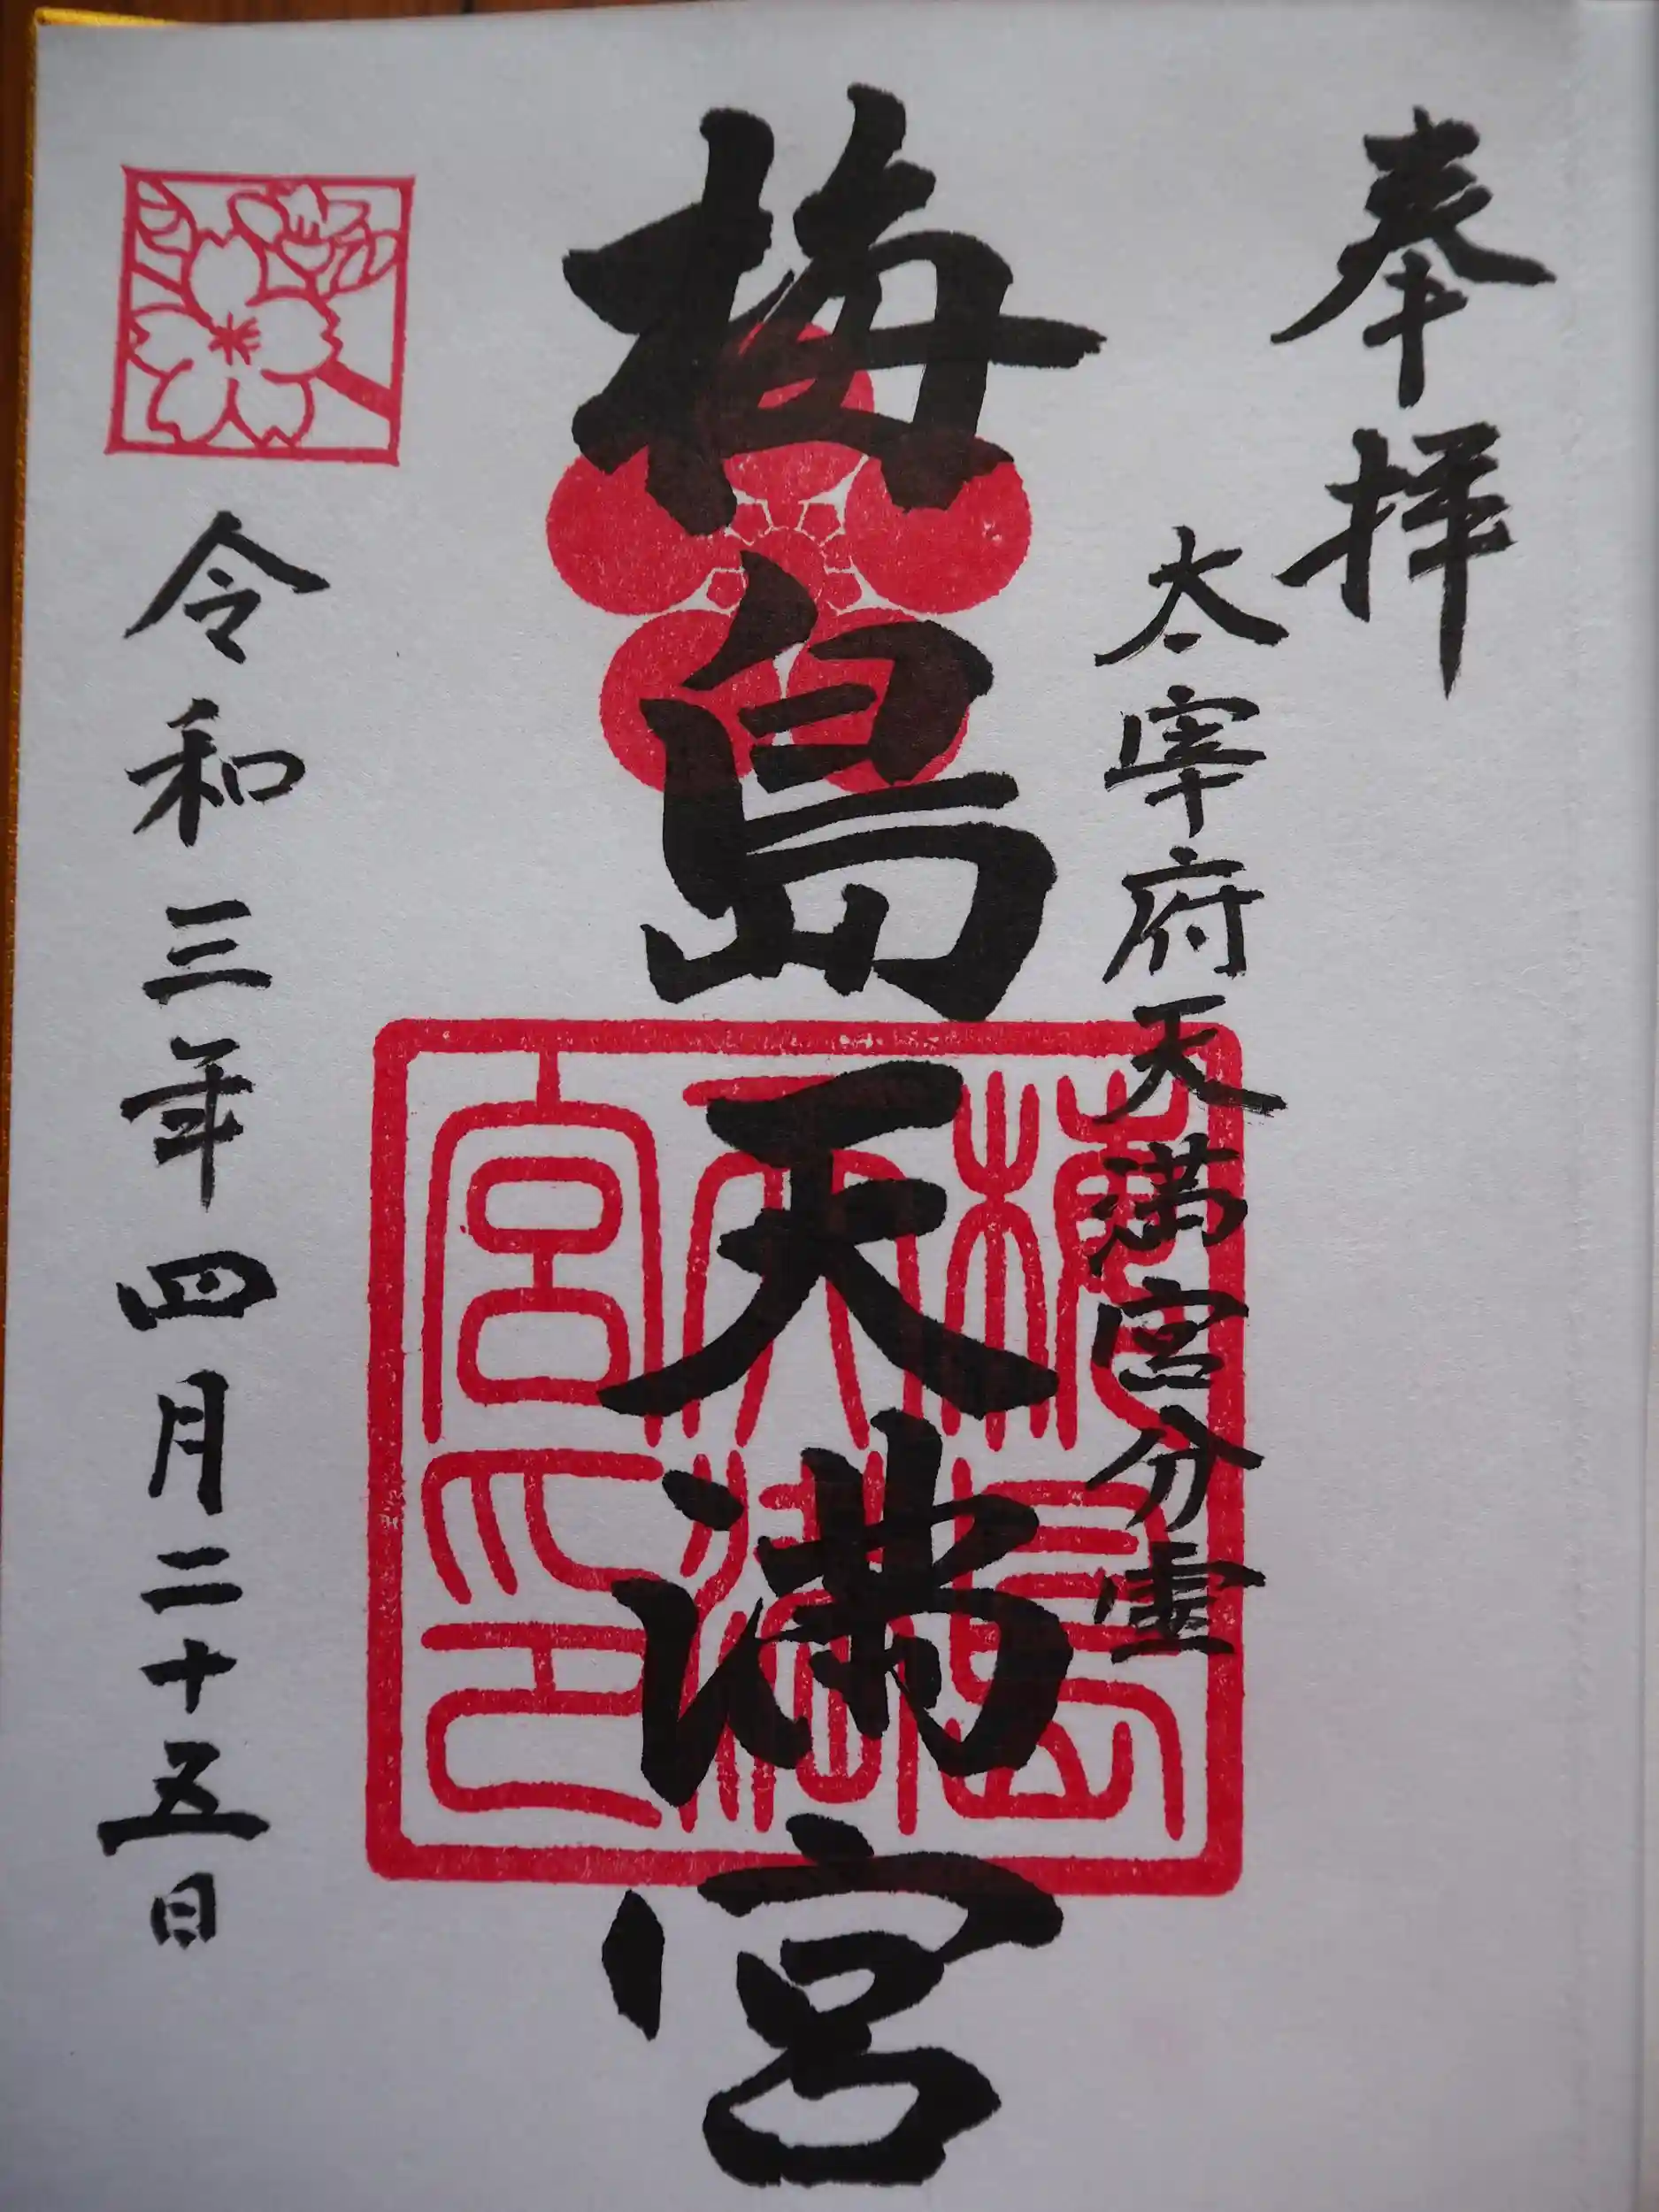 奉拝
太宰府天満宮分霊
梅島天満宮
梅島天満宮之印
令和三年四月二十五日